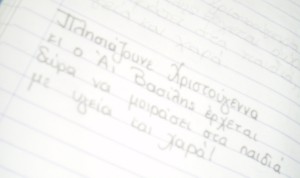 Πλησιάζουνε Χριστούγεννα
κι ο Άι Βασίλης έρχεται
δώρα να μοιράσει στα παιδιά
με υγεία και χαρά!